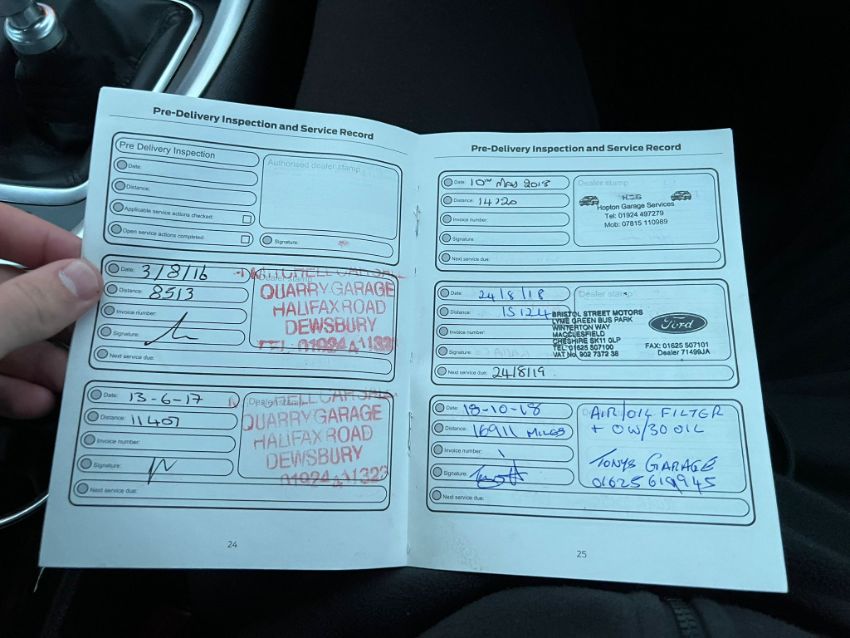 Pre-Delivery Inspection and Service Record
Pre Delivery Inspection
Date:
Distance:
Applicable service actions checked:
Open service actions completed:
Authorised dealer stamp
Signature:
Date: 3/8/16
Distance: 8513
Invoice number:
Signature:
Next service due:
Dealer stamp
QUARRY GARAGE
HALIFAX ROAD
DEWSBURY
TEL: 01924 411322
Date: 13-6-17
Distance: 11407
Invoice number:
Signature:
Next service due:
QUARRY GARAGE
HALIFAX ROAD
DEWSBURY
24
Pre-Delivery Inspection and Service Record
Date: 10TH May 2018
Distance: 14720
Invoice number:
Signature
Next service due:
Dealer stamp
Hopton Garage Services
Tel: 01924 497279
Mob: 07815 110989
Date: 24/8/18
Distance: 15124
Invoice number:
Signature:
Next service due: 24/8/19
Dealer stamp
BRISTOL STREET MOTORS
LYME GREEN BUS PARK
WINTERTON WAY
MACCLESFIELD
CHESHIRE SK11 0LP
TEL: 01625 507100
VAT No. 902 7372 38
Ford
FAX: 01625 507101
Dealer 71499JA
Date: 18-10-18
Distance: 16911 MILES
Invoice number:
Signature:
Next service due:
AIR/OIL FILTER
+ 0W/30 OIL
TONYS GARAGE
01625 619945
25